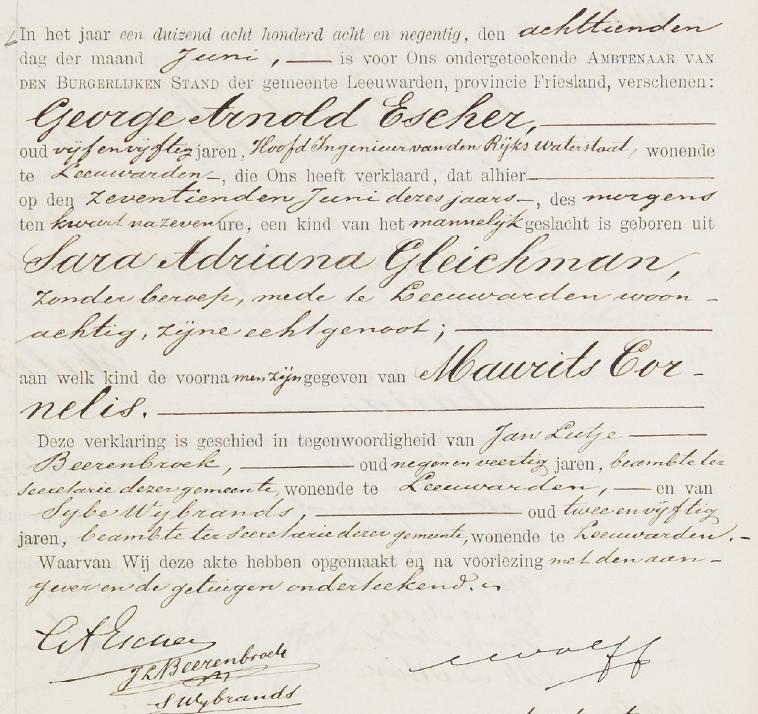 In het jaar een duizend acht honderd acht en negentig, den achttienden
dag der maand Juni, — is voor Ons ondergeteekende AMBTENAAR VAN
DEN BURGERLIJKEN STAND der gemeente Leeuwarden, provincie Friesland, verschenen:
George Arnold Escher, —
oud vijf en vijftig jaren, Hoofd Ingenieur van den Rijks Waterstaat, wonende
te Leeuwarden —, die Ons heeft verklaard, dat alhier —
op den zeventienden Juni dezes jaars —, des morgens
ten kwart na zeven ure, een kind van het mannelijk geslacht is geboren uit
Sara Adriana Gleichman,
zonder beroep, mede te Leeuwarden woon-
achtig, zijne echtgenoot; —
aan welk kind de voornamen zijn gegeven van Maurits Cor-
nelis. —
Deze verklaring is geschied in tegenwoordigheid van Jan Lutje —
Beerenbroek, — oud negen en veertig jaren, beambte ter
secretarie dezer gemeente, wonende te Leeuwarden, — en van
Sybe Wybrands, — oud twee en vijftig
jaren, beambte ter secretarie dezer gemeente, wonende te Leeuwarden. —
Waarvan Wij deze akte hebben opgemaakt en na voorlezing met den aan-
gever en de getuigen onderteekend.
GAEscher
JLBeerenbroek
SWybrands